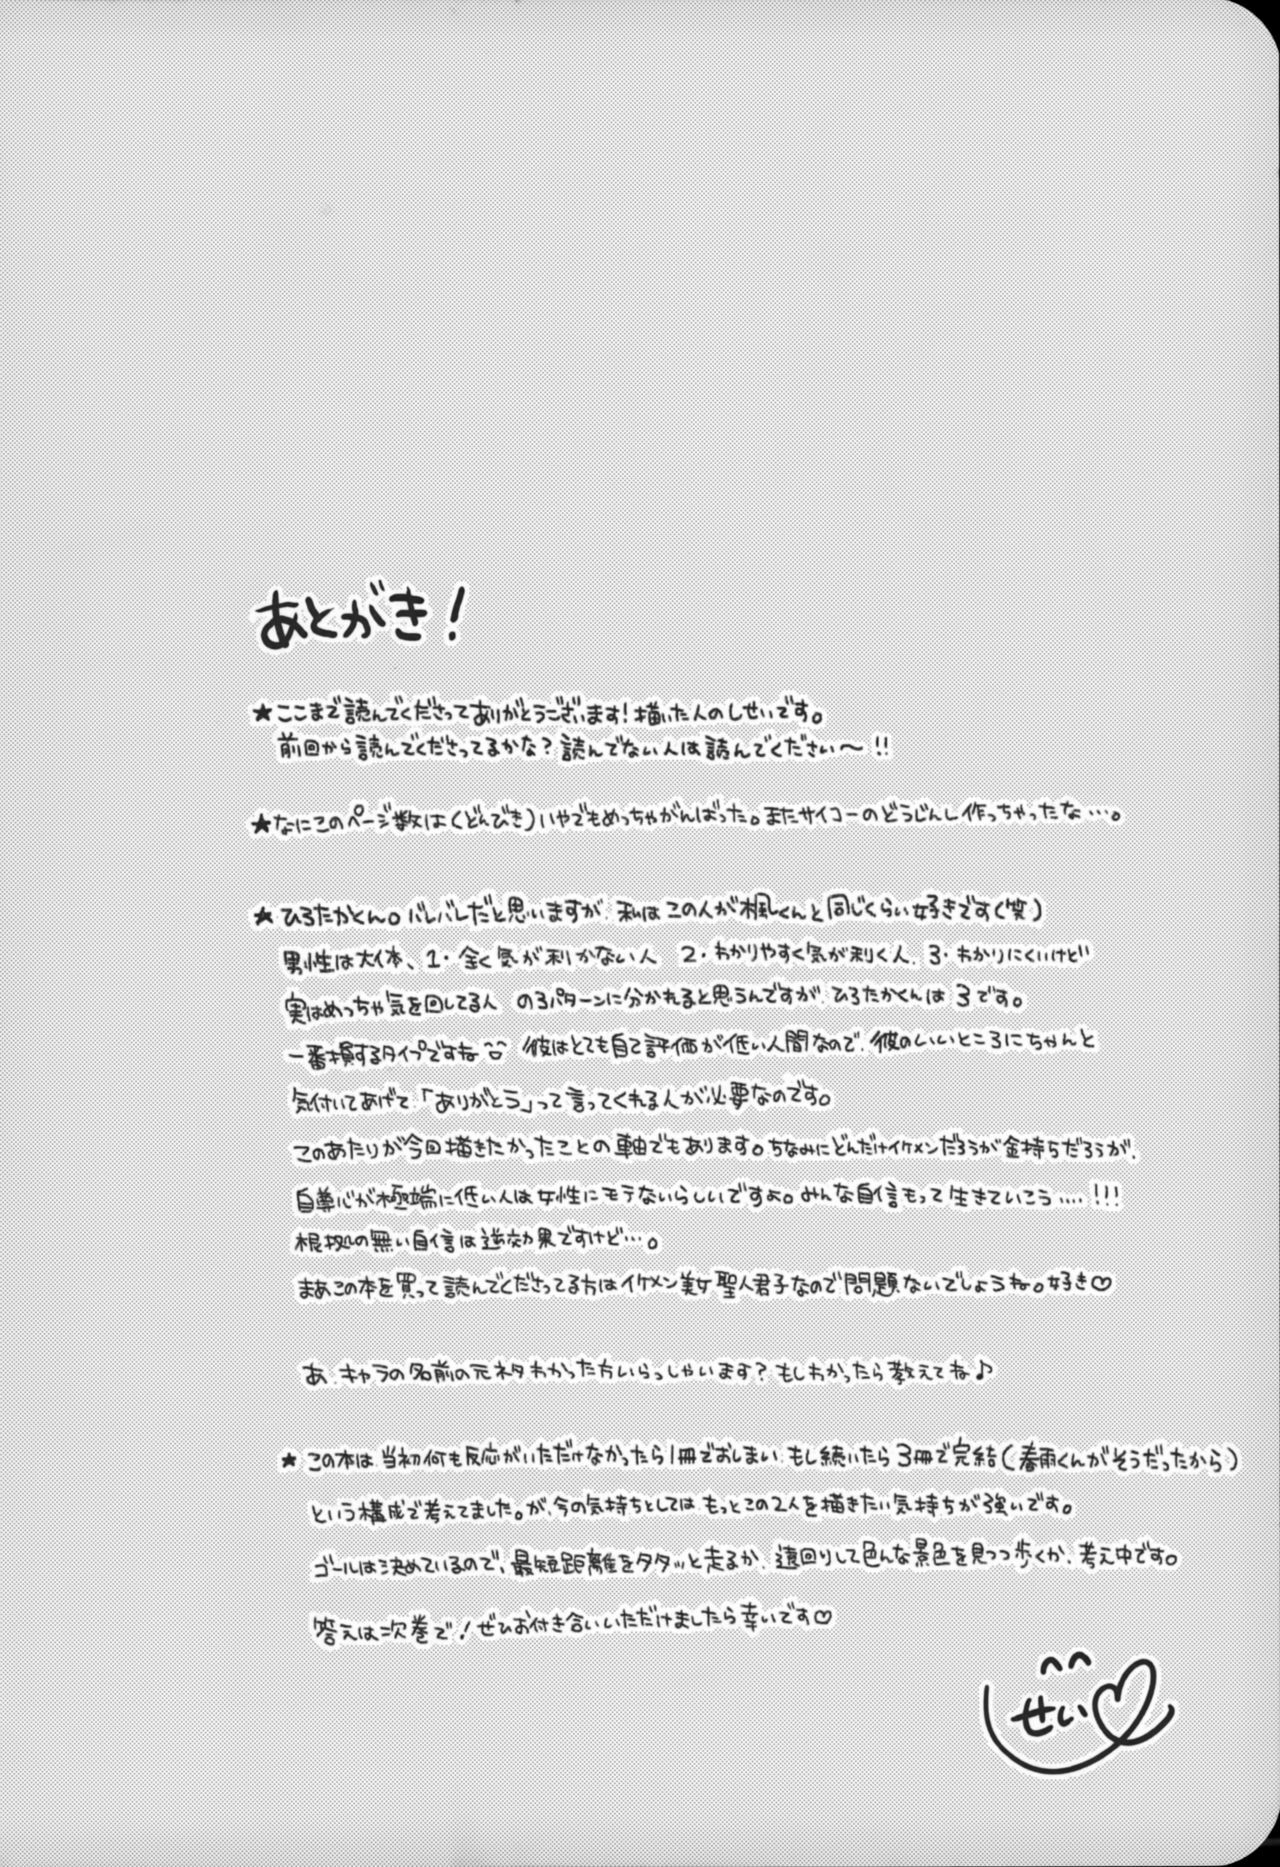 あとがき！
★ここまで読んでくださってありがとうございます！描いた人のしせいです。
前回から読んでくださってるかな？読んでない人は読んでください〜!!
★なにこのページ数は(どんびき)いやでもめっちゃがんばった。またサイコーのどうじんし作っちゃったな…。
★ひろたかくん。バレバレだと思いますが、私はこの人が楓くんと同じくらい好きです(笑)
男性は大体、1・全く気が利かない人 2・わかりやすく気が利く人、3・わかりにくいけど
実はめっちゃ気を回してる人 の3パターンに分かれると思うんですが、ひろたかくんは3です。
一番損するタイプですね 彼はとても自己評価が低い人間なので、彼のいいところにちゃんと
気付いてあげて、「ありがとう」って言ってくれる人が必要なのです。
このあたりが今回描きたかったことの軸でもあります。ちなみにどんだけイケメンだろうが金持ちだろうが、
自尊心が極端に低い人は女性にモテないらしいですよ。みんな自信もって生きていこう....!!!
根拠の無い自信は逆効果ですけど…。
まあこの本を買って読んでくださってる方はイケメン美女聖人君子なので問題ないでしょうね。好き♡
あ、キャラの名前の元ネタわかった方いらっしゃいます？もしわかったら教えてね♪
★この本は、当初何も反応がいただけなかったら1冊でおしまい、もし続いたら3冊で完結(春雨くんがそうだったから)
という構成で考えてました。が、今の気持ちとしては、もっとこの2人を描きたい気持ちが強いです。
ゴールは決めているので、最短距離をタタッと走るか、遠回りして色んな景色を見つつ歩くか、考え中です。
答えは次巻で！ぜひお付き合いいただけましたら幸いです♡
せい♡